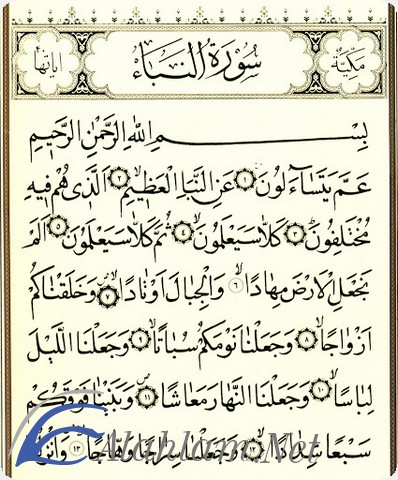 مكية سورة النبأ اياتها
بِسْمِ اللهِ الرَّحْمٰنِ الرَّحِيمِ
عَمَّ يَتَسَاءَلُونَ ١ عَنِ النَّبَأِ الْعَظِيمِ ٢ اَلَّذِى هُمْ فِيهِ
مُخْتَلِفُونَ ٣ كَلَّا سَيَعْلَمُونَ ٤ ثُمَّ كَلَّا سَيَعْلَمُونَ ٥ اَلَمْ
نَجْعَلِ الْاَرْضَ مِهَادًا ٦ وَالْجِبَالَ اَوْتَادًا ٧ وَخَلَقْنَاكُمْ
اَزْوَاجًا ٨ وَجَعَلْنَا نَوْمَكُمْ سُبَاتًا ٩ وَجَعَلْنَا اللَّيْلَ
لِبَاسًا ١٠ وَجَعَلْنَا النَّهَارَ مَعَاشًا ١١ وَبَنَيْنَا فَوْقَكُمْ
سَبْعًا شِدَادًا ١٢ وَجَعَلْنَا سِرَاجًا وَهَّاجًا ١٣
Alahlam.Net